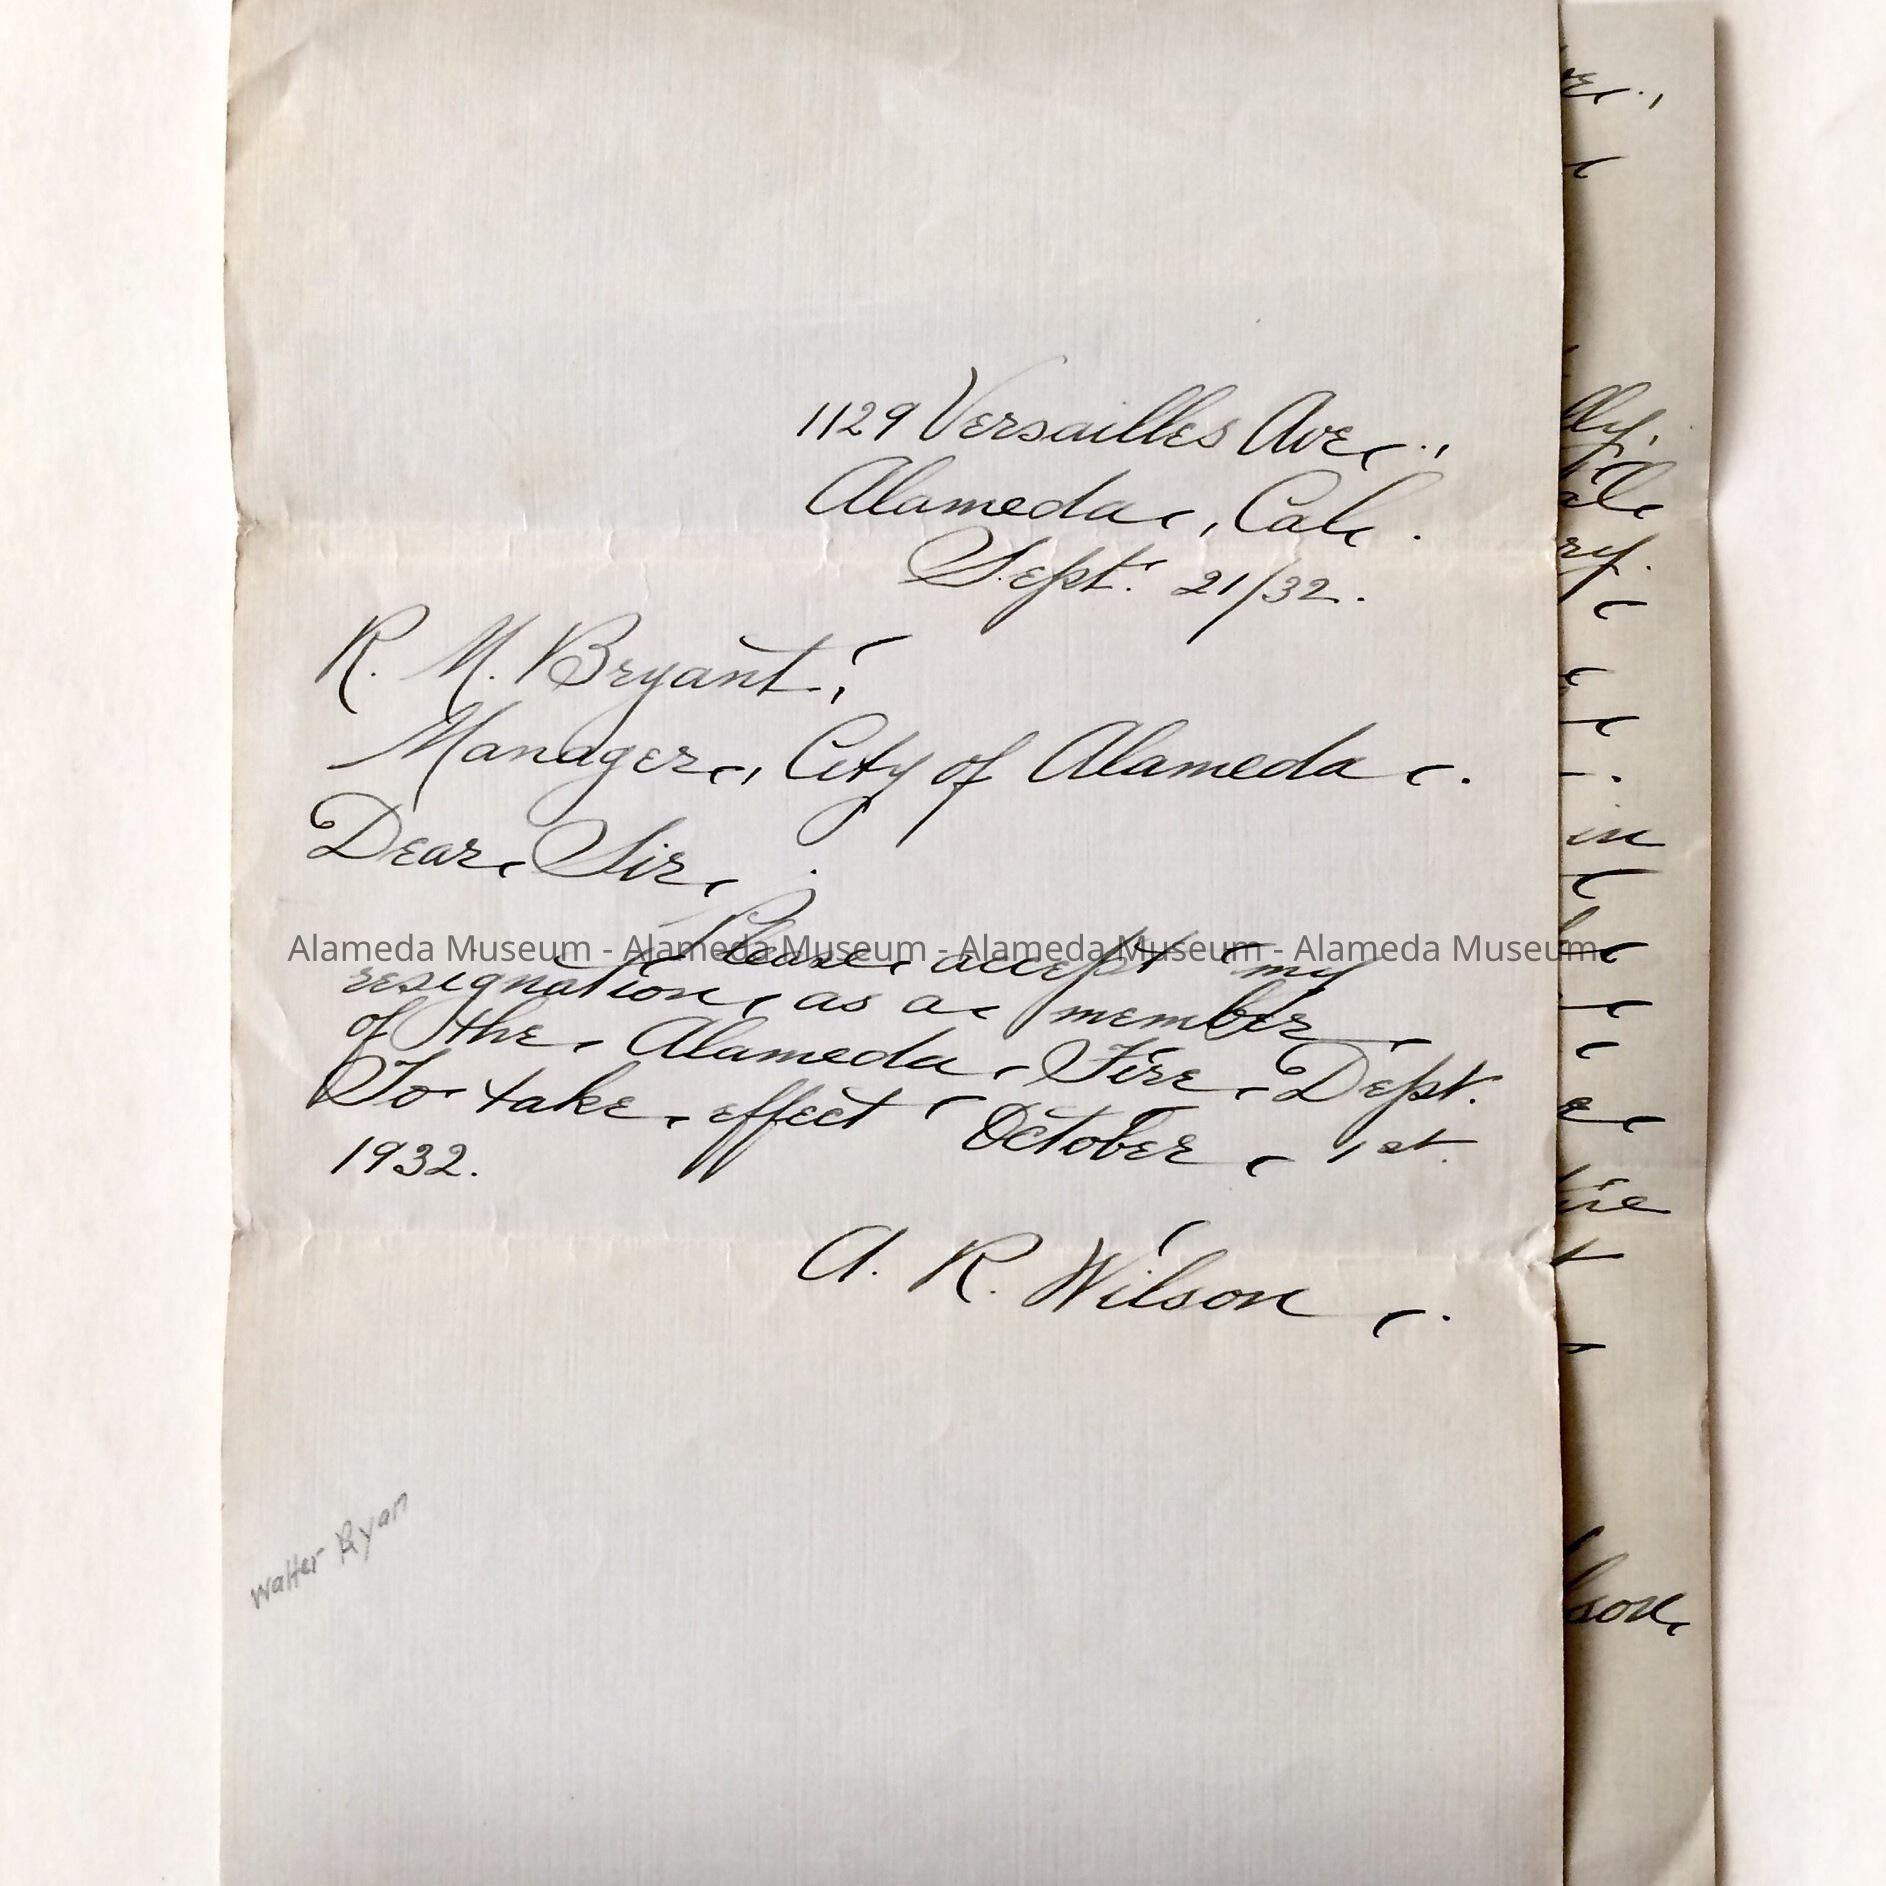 1129 Versailles Ave.,
Alameda, Cal.
Sept. 21/32.
R. M. Bryant,
Manager, City of Alameda.
Dear Sir.
Please accept my
Alameda Museum - Alameda Museum - Alameda Museum - Alameda Museum
resignation as a member
of the Alameda Fire Dept.
To take effect October 1st.
1932.
A. R. Wilson.
Walter Ryan